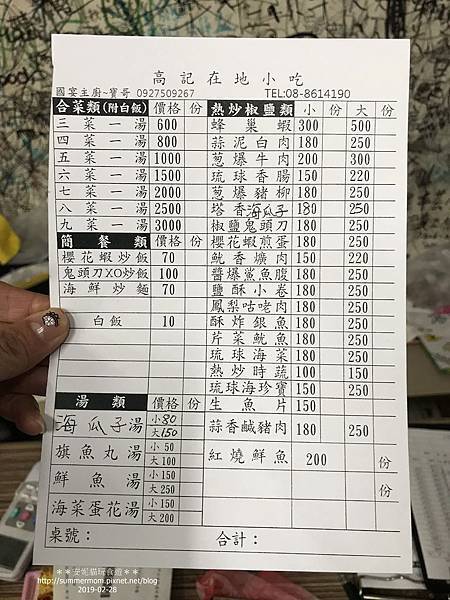 高記在地小吃
國宴主廚~寶哥 0927509267 TEL:08-8614190
合菜類(附白飯) 價格 份
三菜一湯 600
四菜一湯 800
五菜一湯 1000
六菜一湯 1500
七菜一湯 2000
八菜一湯 2500
九菜一湯 3000
簡餐類 價格 份
櫻花蝦炒飯 70
鬼頭刀XO炒飯 100
海鮮炒麵 70
白飯 10
湯類 價格 份
海瓜子湯 小80 大150
旗魚丸湯 小50 大100
鮮魚湯 小150 大250
海菜蛋花湯 小150 大200
桌號：
熱炒椒鹽類 小 份 大 份
蜂巢蝦 300 500
蒜泥白肉 180 250
蔥爆牛肉 200 300
琉球香腸 150 220
蔥爆豬柳 180 250
塔香海瓜子 180 250
椒鹽鬼頭刀 180 250
櫻花蝦煎蛋 180 250
魷香爌肉 150 220
醬爆鯊魚腹 180 250
鹽酥小卷 180 250
鳳梨咕咾肉 180 250
酥炸銀魚 180 250
芹菜魷魚 180 250
琉球海菜 180 250
熱炒時蔬 100 150
琉球海珍寶 150 250
生魚片 150
蒜香鹹豬肉 180 250
紅燒鮮魚 200 份
份
合計：
**安妮貓玩食遊**
http://summermom.pixnet.net/blog
2019-02-28